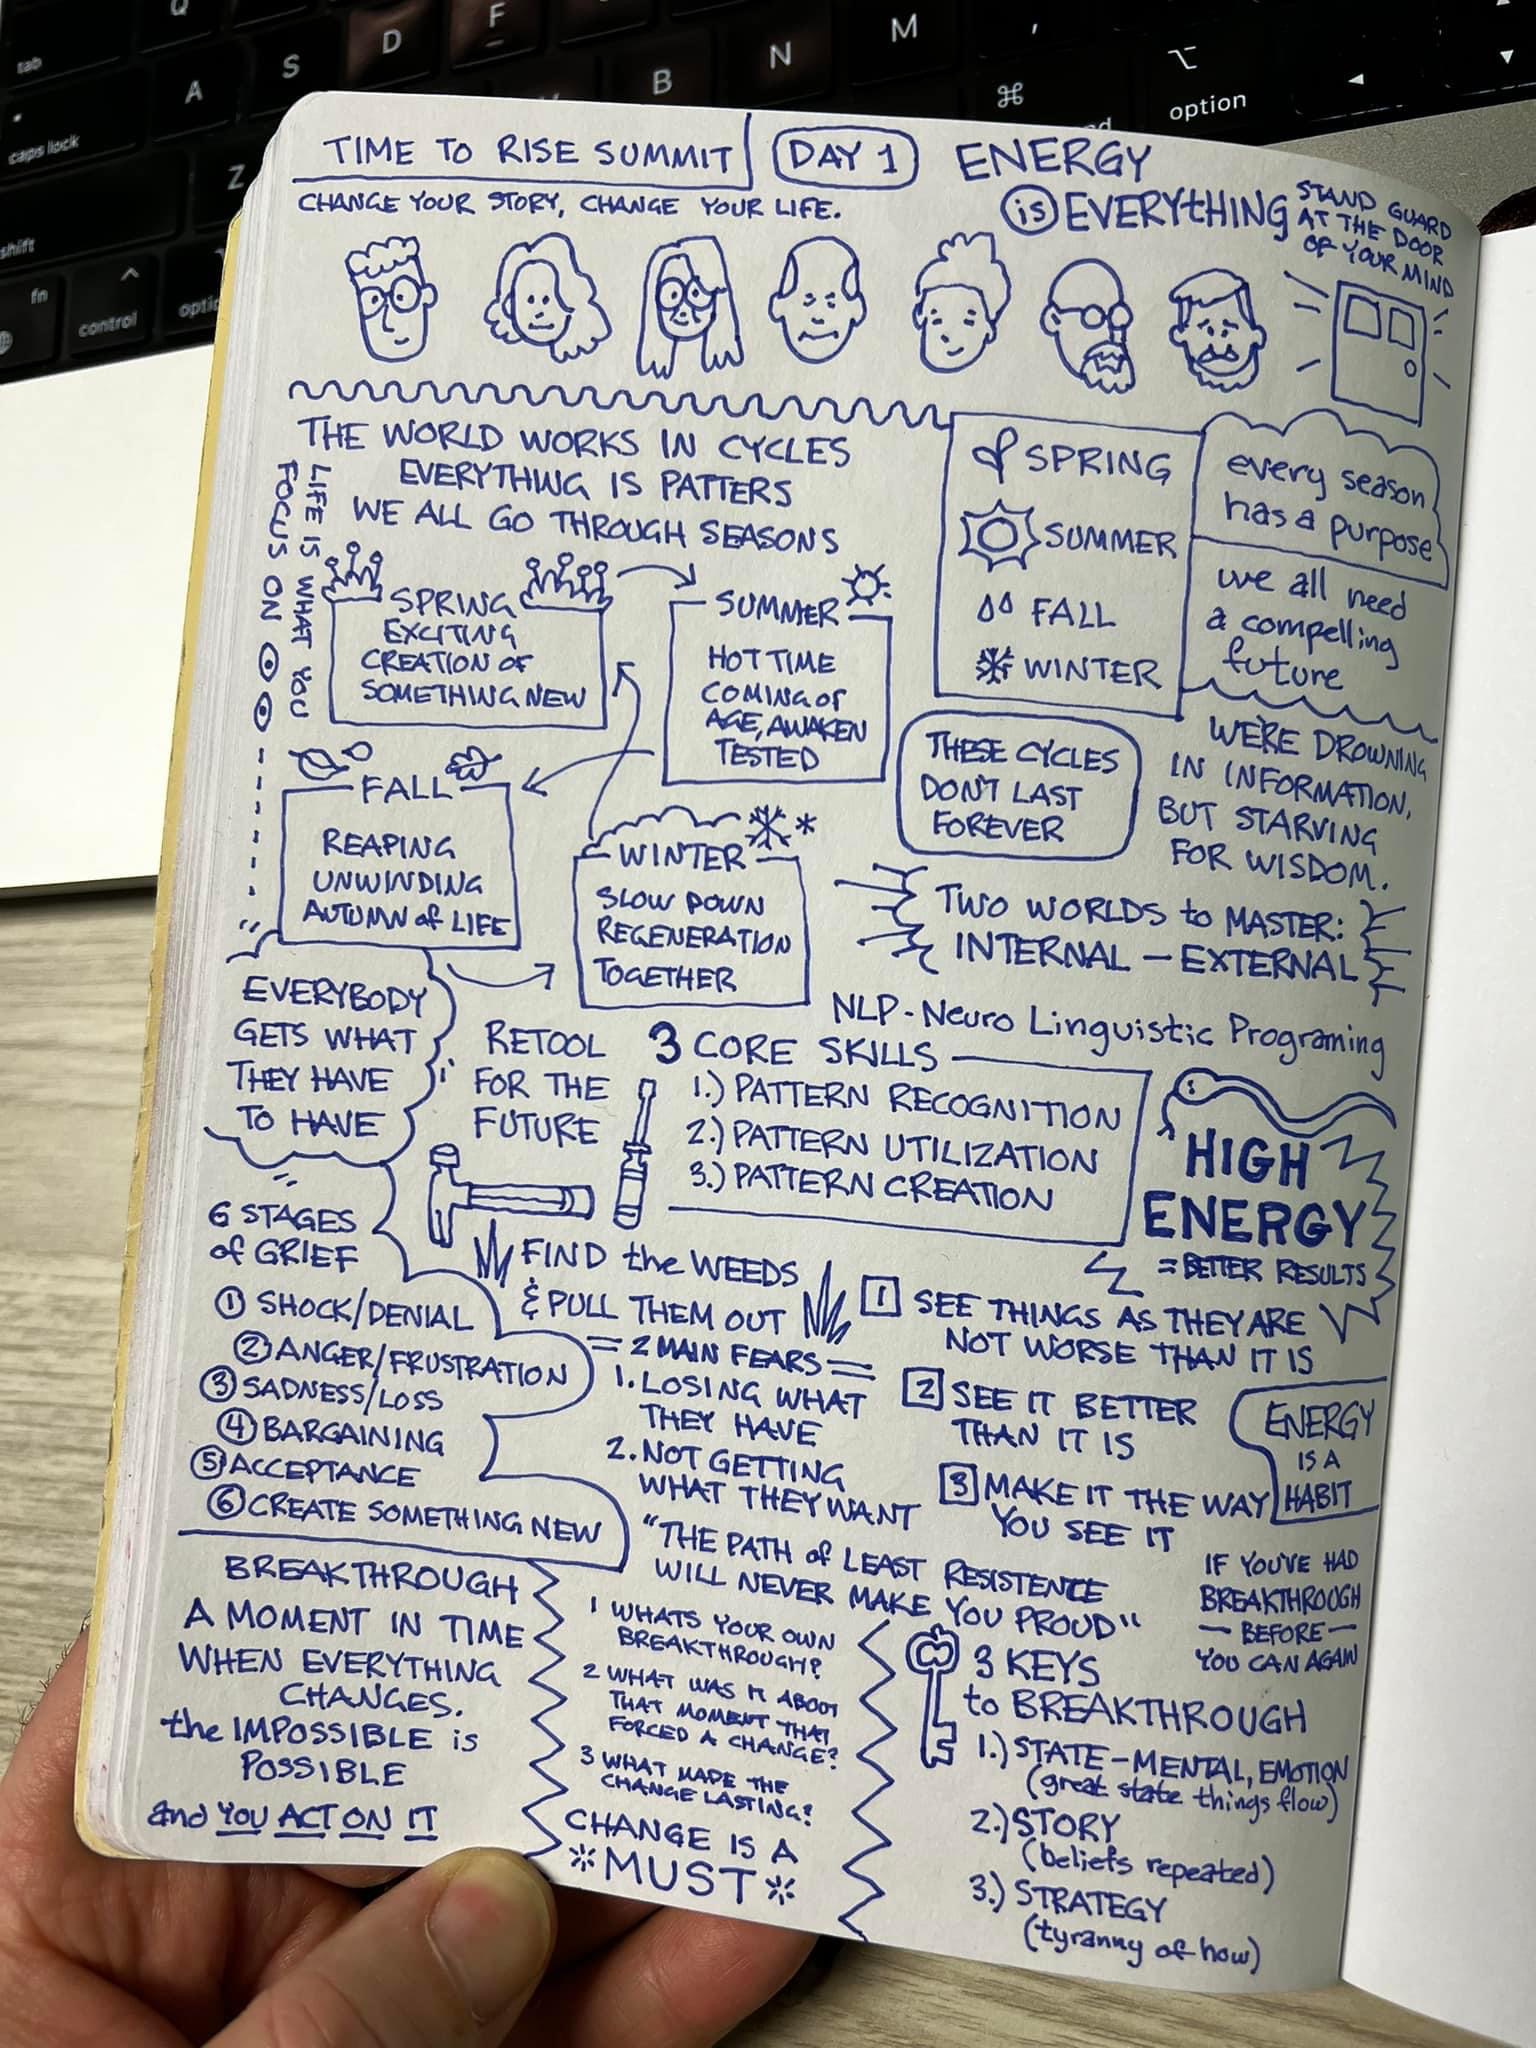 tab
Q
F
A
S
D
B
N
M
⌘
option
caps lock
Z
shift
fn
control
TIME TO RISE SUMMIT
DAY 1
ENERGY
is EVERYTHING
CHANGE YOUR STORY, CHANGE YOUR LIFE.
STAND GUARD
AT THE DOOR
OF YOUR MIND
THE WORLD WORKS IN CYCLES
EVERYTHING IS PATTERS
WE ALL GO THROUGH SEASONS
LIFE IS WHAT YOU
FOCUS ON
SPRING
EXCITING
CREATION OF
SOMETHING NEW
SUMMER
HOT TIME
COMING OF
AGE, AWAKEN
TESTED
FALL
REAPING
UNWINDING
AUTUMN of LIFE
WINTER
SLOW DOWN
REGENERATION
TOGETHER
SPRING
SUMMER
FALL
WINTER
every season
has a purpose
we all need
a compelling
future
THESE CYCLES
DON'T LAST
FOREVER
WE'RE DROWNING
IN INFORMATION,
BUT STARVING
FOR WISDOM.
TWO WORLDS to MASTER:
INTERNAL - EXTERNAL
NLP - Neuro Linguistic Programing
EVERYBODY
GETS WHAT
THEY HAVE
TO HAVE
RETOOL
FOR THE
FUTURE
3 CORE SKILLS
1.) PATTERN RECOGNITION
2.) PATTERN UTILIZATION
3.) PATTERN CREATION
HIGH
ENERGY
= BETTER RESULTS
6 STAGES
of GRIEF
① SHOCK/DENIAL
② ANGER/FRUSTRATION
③ SADNESS/LOSS
④ BARGAINING
⑤ ACCEPTANCE
⑥ CREATE SOMETHING NEW
FIND the WEEDS
& PULL THEM OUT
= 2 MAIN FEARS =
1. LOSING WHAT
THEY HAVE
2. NOT GETTING
WHAT THEY WANT
1 SEE THINGS AS THEY ARE
NOT WORSE THAN IT IS
2 SEE IT BETTER
THAN IT IS
3 MAKE IT THE WAY
YOU SEE IT
ENERGY
IS A
HABIT
"THE PATH of LEAST RESISTENCE
WILL NEVER MAKE YOU PROUD"
IF YOU'VE HAD
BREAKTHROUGH
- BEFORE -
YOU CAN AGAIN
BREAKTHROUGH
A MOMENT IN TIME
WHEN EVERYTHING
CHANGES.
the IMPOSSIBLE is
POSSIBLE
and YOU ACT ON IT
1 WHATS YOUR OWN
BREAKTHROUGH?
2 WHAT WAS IT ABOUT
THAT MOMENT THAT
FORCED A CHANGE?
3 WHAT MADE THE
CHANGE LASTING?
CHANGE IS A
MUST
3 KEYS
to BREAKTHROUGH
1.) STATE - MENTAL, EMOTION
(great state things flow)
2.) STORY
(beliefs repeated)
3.) STRATEGY
(tyranny of how)